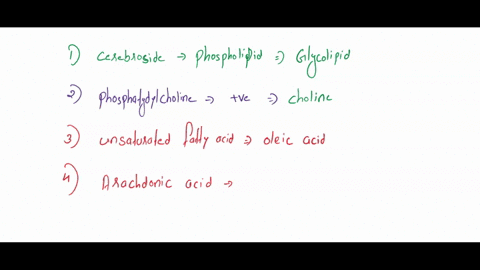 1) Cerebroside → phospholipid ⇒ Glycolipid
2) phosphatydylcholine → +ve ⇒ choline
3) unsaturated fatty acid ⇒ oleic acid
4) Arachdonic acid →